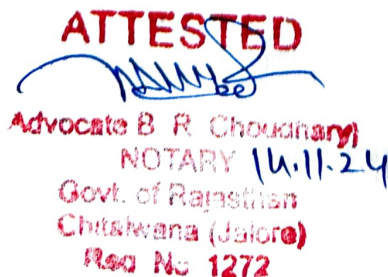 ATTESTED
Advocate B R Choudhary
NOTARY 14.11.24
Govt. of Rajasthan
Chitalwana (Jalore)
Reg No 1272